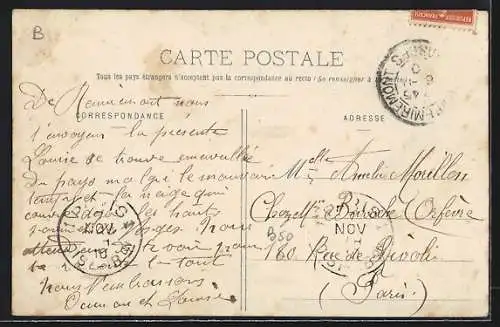 B
CARTE POSTALE
Tous les pays étrangers n'acceptent pas la correspondance au recto (Se renseigner à la poste)
CORRESPONDANCE
ADRESSE
De Remiremont nous
t'envoyons la présente
Louise se trouve émerveillée
du pays malgré le mauvais
temps et la neige qui
couvre déjà les hauts
sommets des Vosges. Nous
te voir
le tout
Nous t'embrassons
et Louise
Melle Amélie Morillon
Chez Mr Orfèvre
160 Rue de Rivoli
(Paris)
REMIREMONT
VOSGES
PARIS
NOV
PARIS
NOV